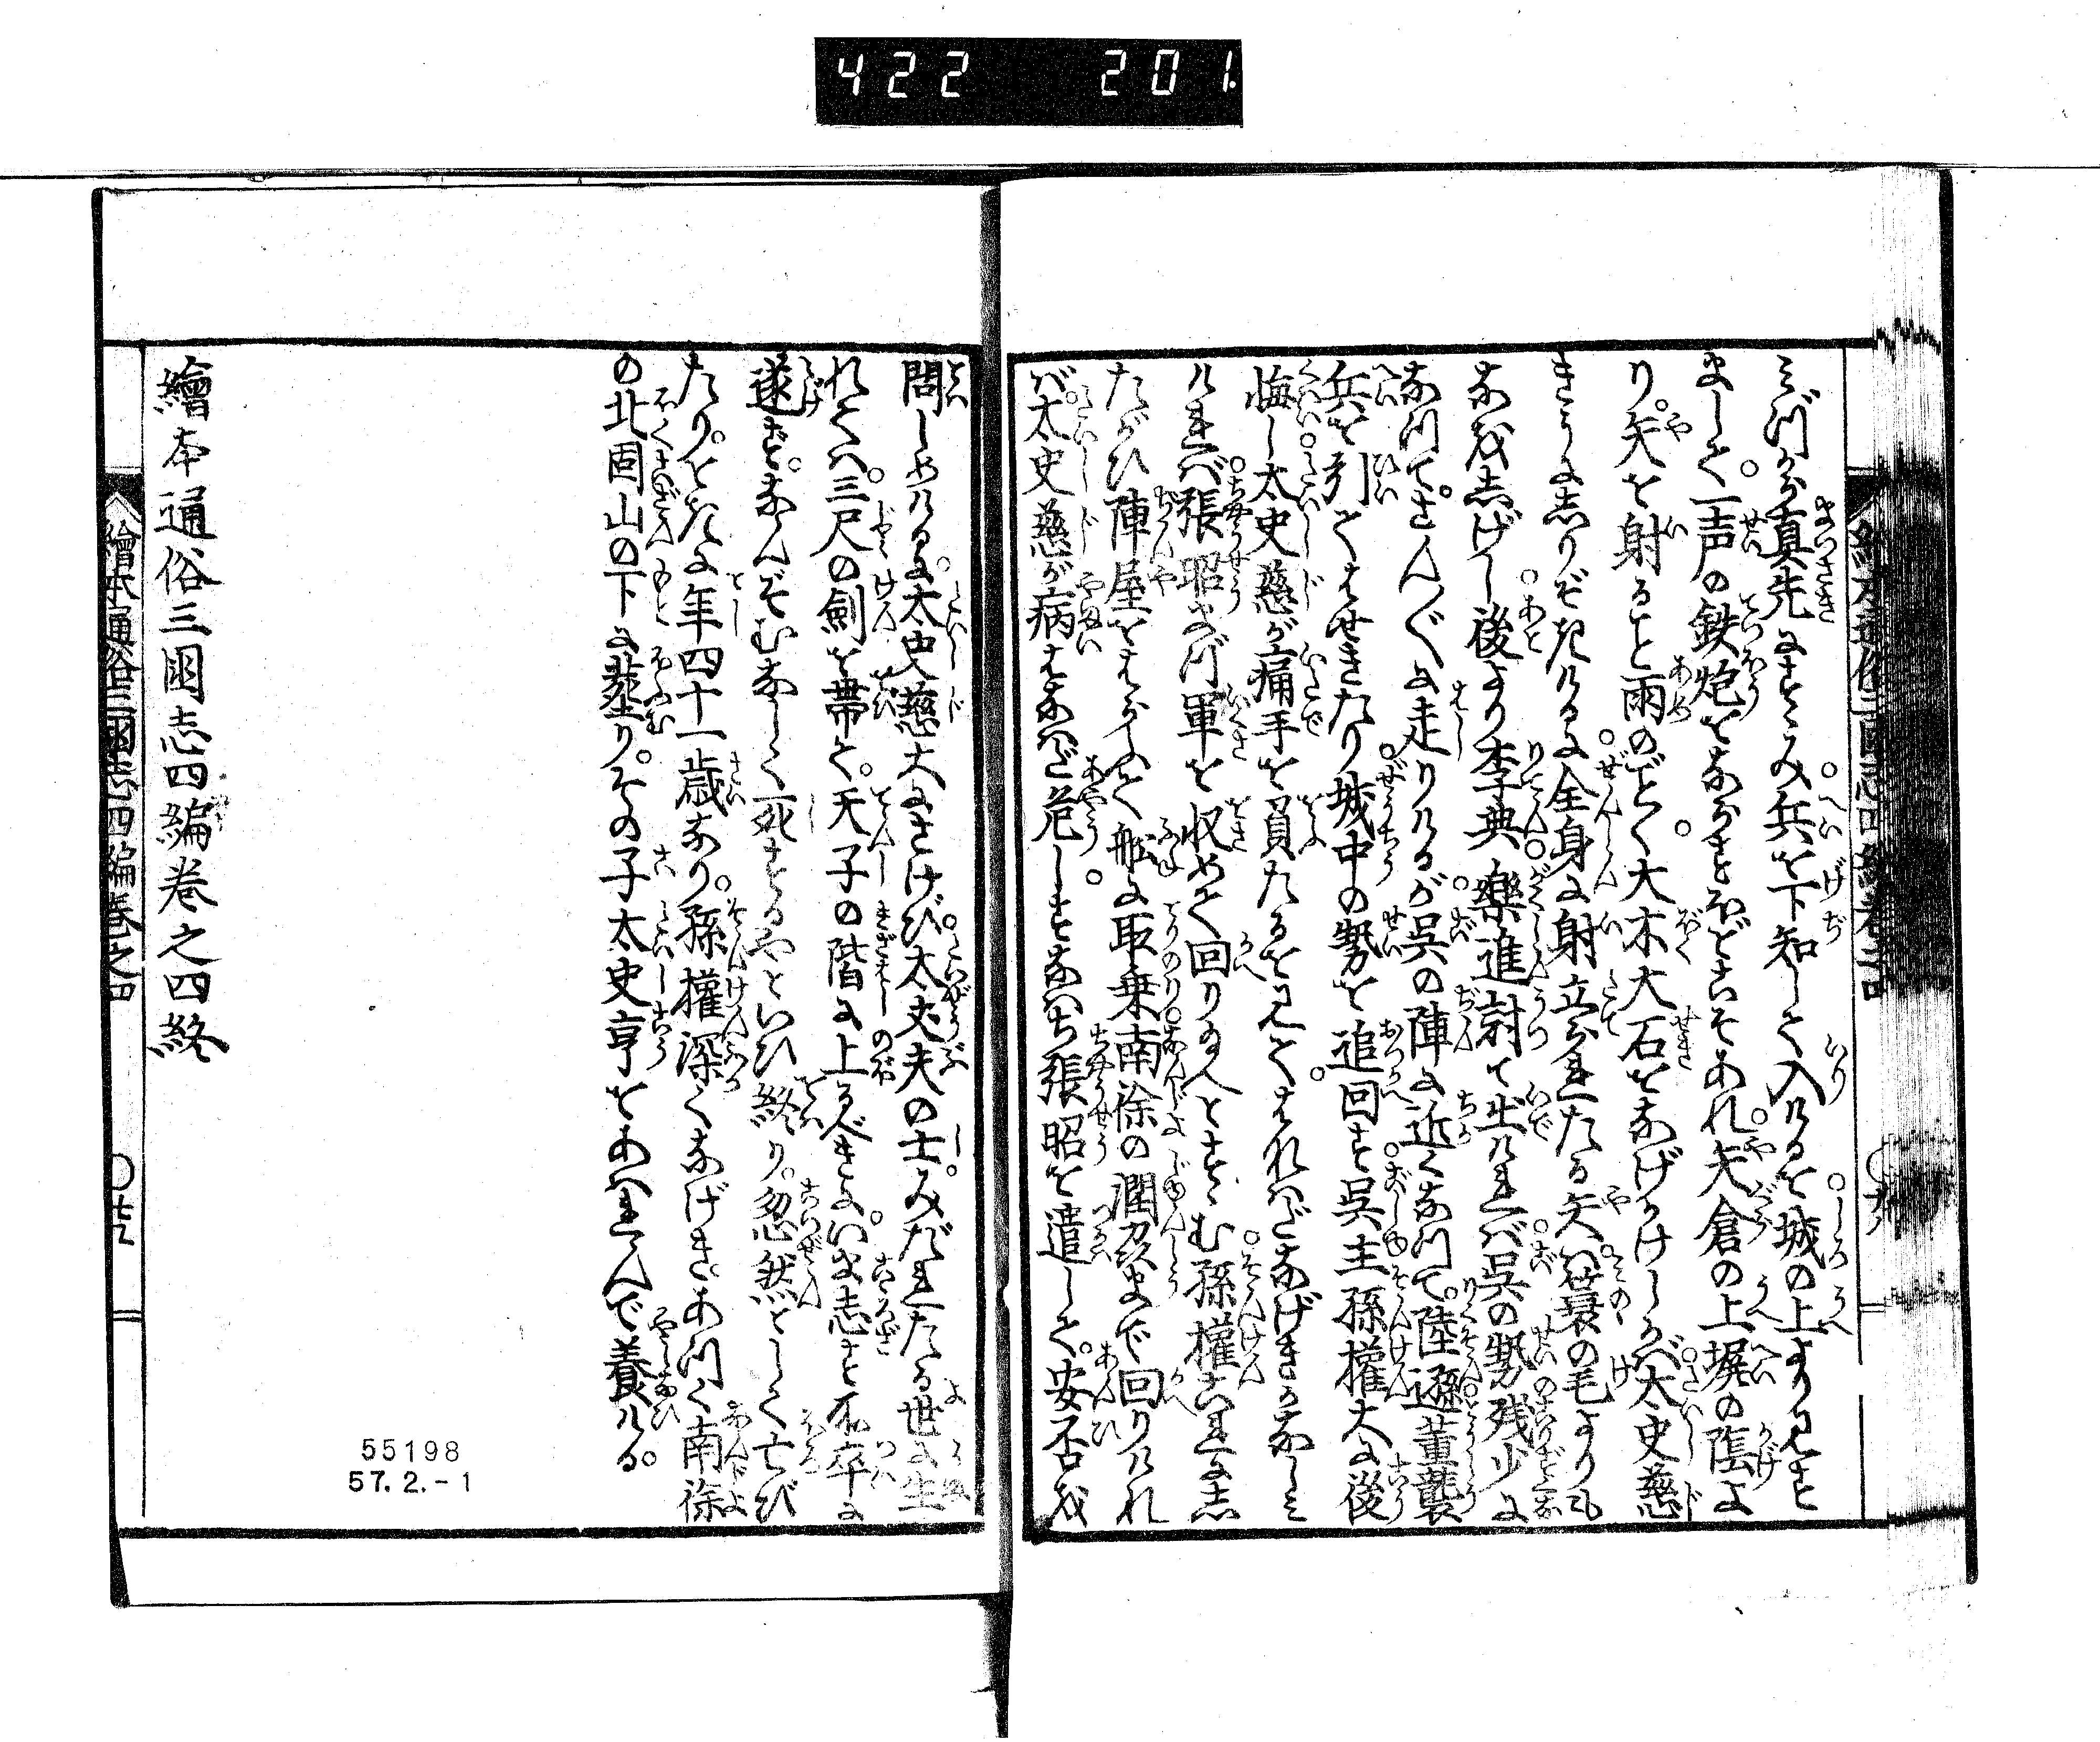 422 201
みづから真先にすゝみ兵を下知して入けるを城の上より見す
まして一声の鉄炮をながすほどこそあれ矢倉の上塀の陰よ
り矢を射ること雨のごとく大木大石をなげかけしかば太史慈
きうにしりぞきけるに全身に射立られたる矢は蓑の毛よりも
なほしげし後より李典楽進討て出ければ呉の勢残少に
なつてさんざんに走りけるが呉の陣に近くなつて陸遜董襲
兵を引てはせきたり城中の勢を追回す呉主孫權大に後
悔し太史慈が痛手を負たるを見てはなはだなげきかなしみ
ければ張昭まづ軍を収めて回り給へとすゝむ孫權これにし
たがひ陣屋をはらふて舩に取乗南徐の潤劦まで回りけれ
ば太史慈が病はなはだ危しすなはち張昭を遣して安否を
問しめけるに太史慈大にさけび太丈夫の士みだれたる世に生
れては三尺の劍を帯て天子の階に上るべきにいま志すと不卒に
遂ずなんぞむなしく死するやといひ終り忽然としてく亡び
たりときに年四十一歳なり孫權深くなげきあつく南徐
の北固山の下に葬りその子太史亨をあはれんで養ける
繪本通俗三國志四編巻之四終
繪本通俗三國志四編巻之四
55198
57.2.-1